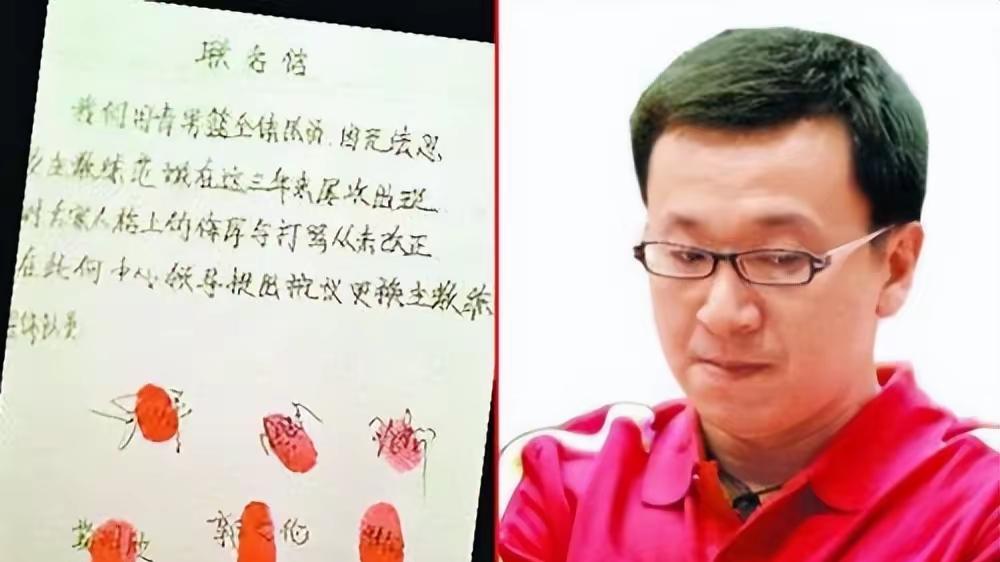 联名信
我们国青男篮全体队员,因无法忍
受主教练范斌在这三年来屡次出现
对大家人格上的侮辱与打骂从未改正
在此向中心领导提出抗议更换主教练
全体队员